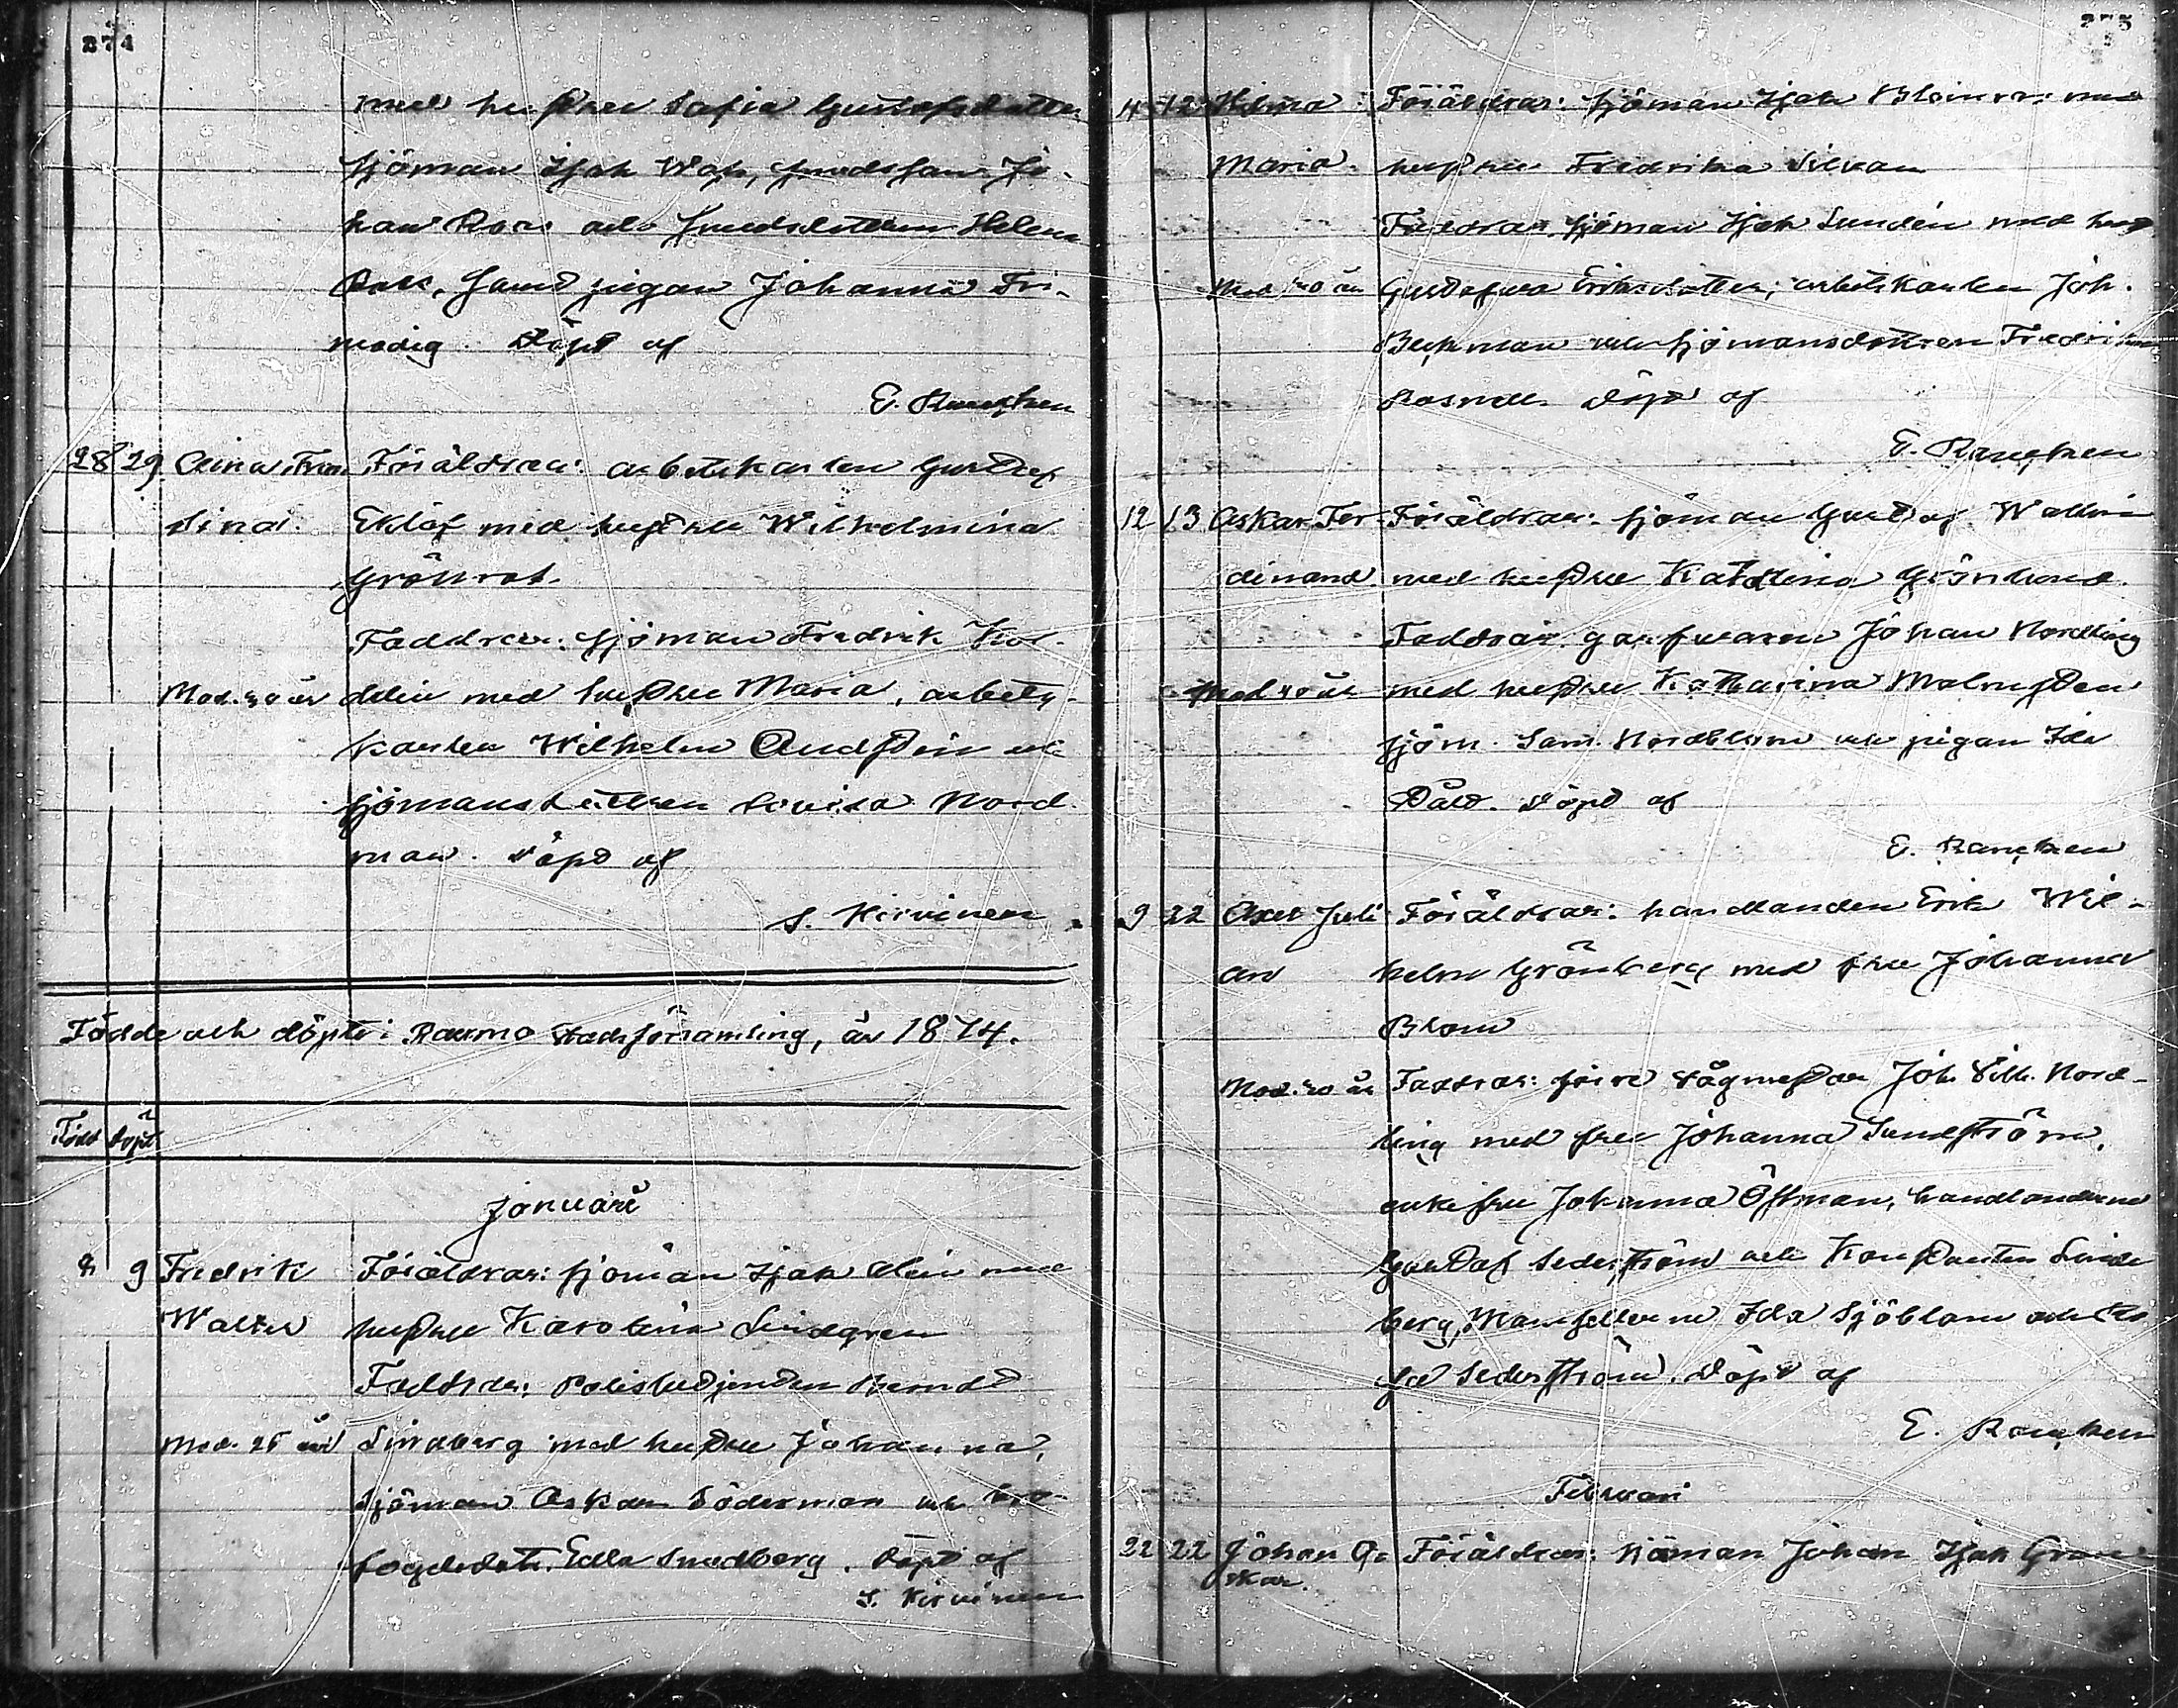 274
med hustru Sofia Gustafsdotter
sjöman Isak
han Roos och Helena
pigan Johanna Fri-
modig. Döpt af
E. Rancken
28 29. Aina Fran- Föräldrar: arbetskarlen Gustaf
sina. Eklöf med hustru Wilhelmina
Grönrot.
Faddrar: sjöman Fredrik
Mod. 30 år med hustru Maria, arbets-
karlen Wilhelm och
sjömansdottren Lovisa Nord-
man. Döpt af
S. Kirvinen
Födde och döpte i Raumo Stadsförsamling, år 1874.
Född Döpt
Januari
8 9 Fredrik Föräldrar: sjöman Isak med
Walter hustru Karolina Lindgren
Faddrar: Polisbetjenten
Mod. 25 år Lindberg med hustru Johanna,
sjöman Oskar Söderman och
fogdedott. Edla Lindberg. Döpt af
S. Kirvinen
275
4 12 Hilma Föräldrar: sjöman Isak med
Maria. hustru Fredrika Silvan
Faddrar: sjöman Isak Lundén med hust.
Mod. 30 år Gustafva Eriksdotter; arbetskarlen Joh.
Beckman och sjömansdottren Fredrika
Rosnell. Döpt af
E. Rancken
12 13 Oskar Fer- Föräldrar: sjöman Gustaf Wallin
dinand. med hustru Katarina Grönlund.
Faddrar: garfvaren Johan Nordling
Mod. 40 år med hustru Katharina Malmsten
sjöm. Sam. Nordblom och pigan Ida
Stål. Döpt af
E. Rancken
9 22 Axel Juli- Föräldrar: handlanden Erik Wil-
an helm Grönberg med fru Johanna
Blom
Mod. 20 år Faddrar: förre vågmästar Joh. Vilh. Nord-
ling med fru Johanna Sundström,
enkefru Johanna Öffman, handlanderne
Gustaf Sederström och Konstantin Lind-
berg, Mamsellerne Ida Sjöblom och
Sederström. Döpt af
E. Rancken
Februari
22 22 Johan O- Föräldrar: sjöman Johan Isak
skar.